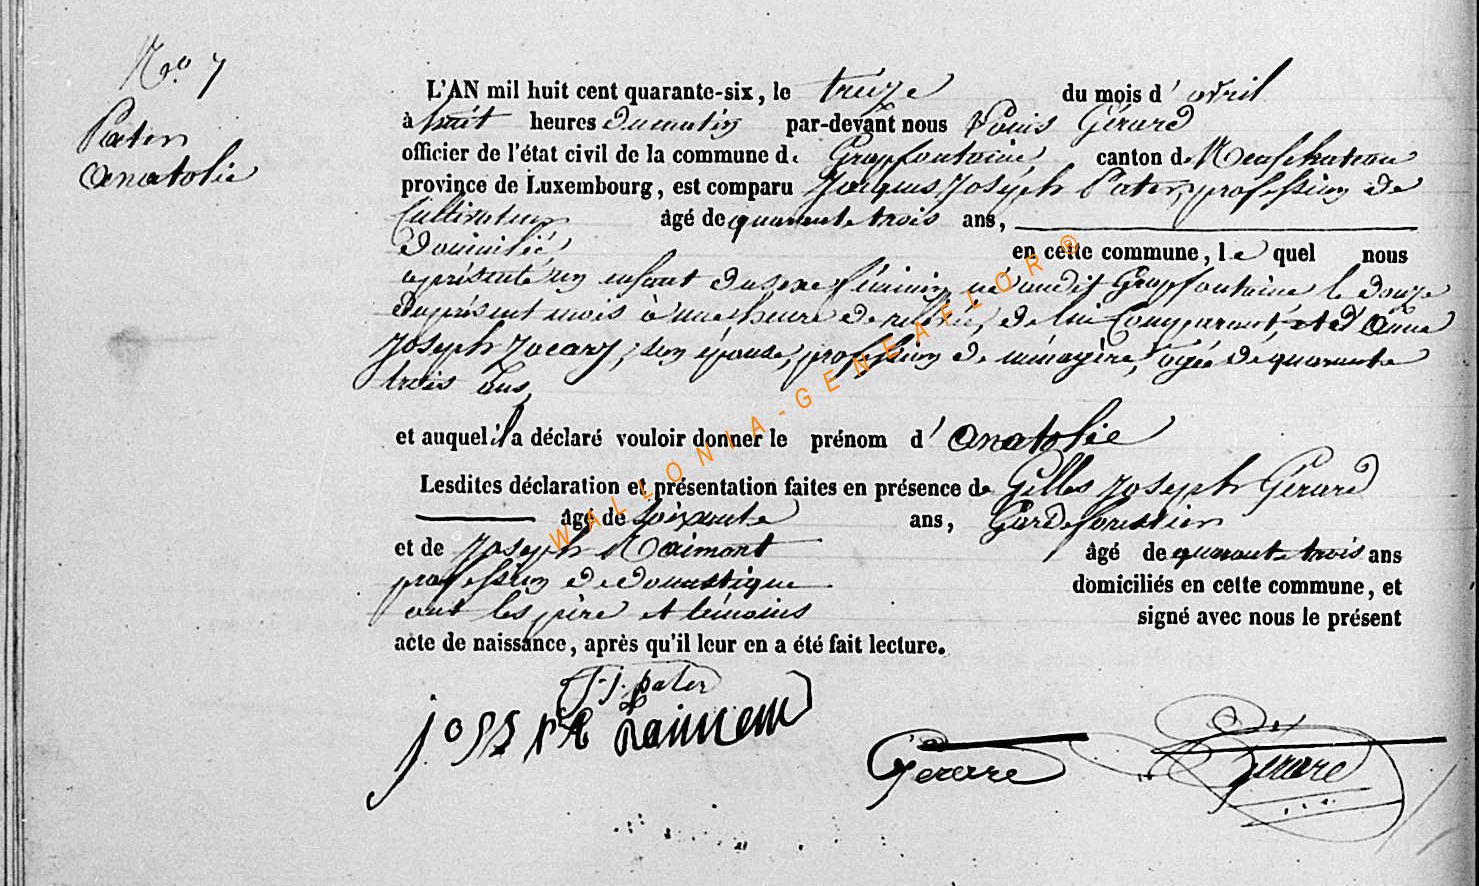 No 7
Pater
Anatolie
L'AN mil huit cent quarante-six, le treize du mois d' avril
à huit heures du matin par-devant nous Louis Gérard
officier de l'état civil de la commune de Grapfontaine canton de Neufchateau
province de Luxembourg, est comparu Jacques Joseph Pater, profession de
Cultivateur âgé de quarante trois ans,
Domicilié en cette commune, le quel nous
a présenté un enfant du sexe féminin né audit Grapfontaine le douze
du présent mois à une heure de relevée, de lui Comparant et d'Anne
Joseph Jacary, son épouse, profession de ménagère, âgée de quarante
trois ans,
et auquel il a déclaré vouloir donner le prénom d' Anatolie
Lesdites déclaration et présentation faites en présence de Gilles Joseph Gérard
âgé de Soixante ans, Garde forestier
et de Joseph Raimont âgé de quarante trois ans
profession de domestique domiciliés en cette commune, et
ont les père et témoins signé avec nous le présent
acte de naissance, après qu'il leur en a été fait lecture.
J. J. Pater
Joseph
Gerarre Gerard
WALLONIA-GENEAFLOR ®